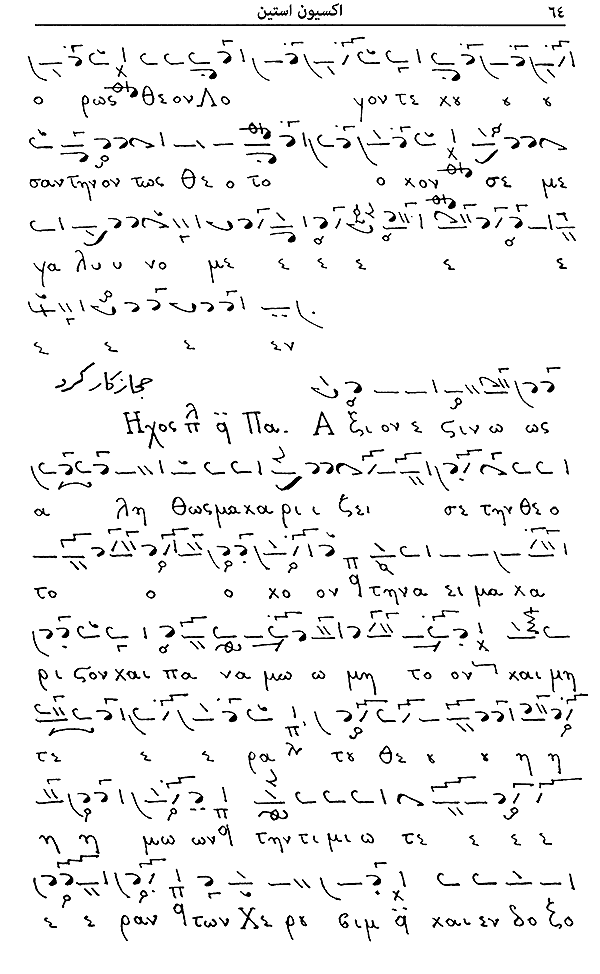 ٦٤ اكسيون استين
ο ρως θεον Λο γον τε χυ υ υ
σαν την ον τως θε ο το ο χον σε με
γα λυ υ νο με ε ε ε ε ε
ε ε ε εν
حجازكار كرد
Ηχος λ π q Πα. Α ξι ον ε ζιν ω ως
α λη θως μα χα ρι ι ζει σε την θε ο
το ο ο χο ον την α ει μα χα
ρι ζον και πα να μω ω μη το ον και μη
τε ε ε ρα τυ θε υ υ η η
η η μω ων την τι μι ω τε ε ε ε
ε ε ραν των Χε ρυ βιμ q και εν δο ξο